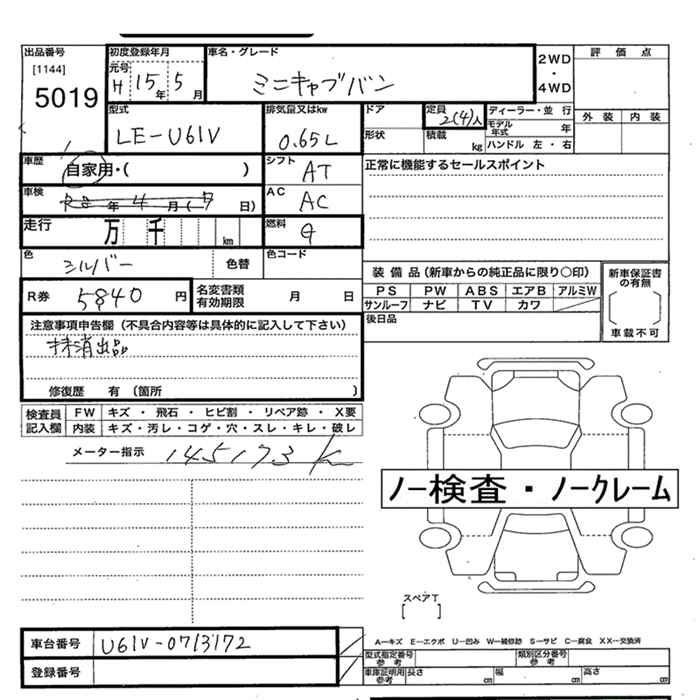 出品番号
[1144]
5019
初度登録年月
元号
H 15年 5月
車名・グレード
ミニキャブバン
2WD
・
4WD
評価点
外装 内装
型式
LE-U61V
排気量又はkw
0.65L
ドア
形状
定員
2(4)人
積載
kg
ディーラー・並行
モデル年式 年
ハンドル 左・右
車歴
自家用・( )
シフト
AT
正常に機能するセールスポイント
車検
年 4月( 日)
AC
AC
走行
万 千 km
燃料
G
色
シルバー
色替
色コード
装備品(新車からの純正品に限り○印)
PS PW ABS エアB アルミW
サンルーフ ナビ TV カワ
後日品
新車保証書の有無
車載不可
R券 5840円
名変書類有効期限 月 日
注意事項申告欄(不具合内容等は具体的に記入して下さい)
抹消出品
修復歴 有(箇所 )
検査員記入欄
FW キズ・飛石・ヒビ割・リペア跡・X要
内装 キズ・汚レ・コゲ・穴・スレ・キレ・破レ
メーター指示 145173 km
ノー検査・ノークレーム
スペアT
[ ]
車台番号 U61V-0713172
登録番号
A―キズ E―エクボ U―凹み W―補修跡 S―サビ C―腐食 XX―交換済
型式指定番号参考
類別区分番号参考
車庫証明用参考 長さ cm 幅 cm 高さ cm